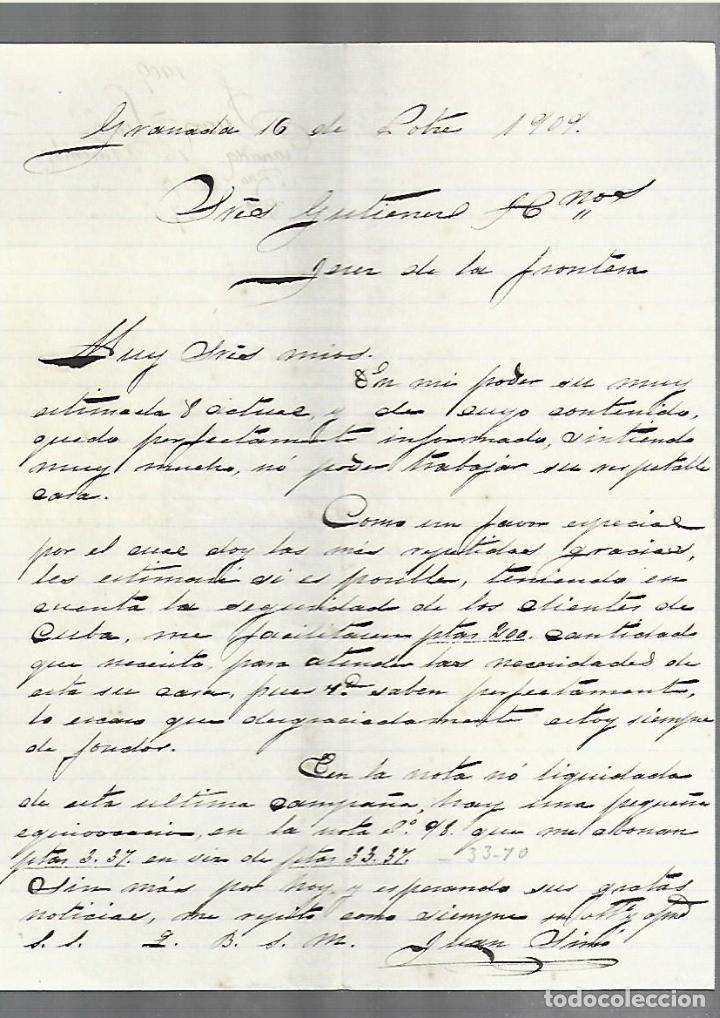 Granada 16 de Octbre 1909.
Sres Gutierrez Hnos
Jerez de la frontera
Muy Sres mios.
En mi poder su muy
estimada 8 actual, y de cuyo contenido,
quedo perfectamente informado, sintiendo
muy mucho, nó poder trabajar su respetable
casa.
Como un favor especial
por el cual doy las más repetidas gracias,
les estimaré si es posible, teniendo en
cuenta la seguridad de los clientes de
Cuba, me faciliten ptas 200. cantidad
que necesito, para atender las necesidades de
esta su casa, pues Vds. saben perfectamente,
lo escaso que desgraciadamente estoy siempre
de fondos.
En la nota nó liquidada
de esta ultima campaña, hay una pequeña
equivocacion, en la nota nº 98. que me abonan
ptas 3.37. en vez de ptas 33.37. - 33-70
Sin más por hoy, y esperando sus gratas
noticias, me repito como siempre su
S. S. Q. B. S. M. Juan Simó
todocoleccion
todocoleccion.net